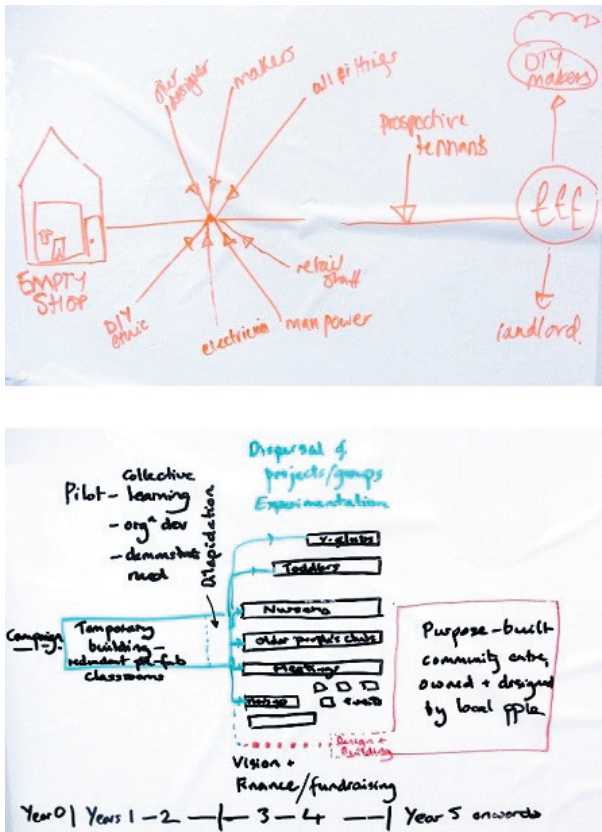 our
designer
makers
all fittings
prospective
tennants
DIY
makers
£££
EMPTY
SHOP
DIY
ethic
electrician
man power
retail
staff
landlord.
Dispersal of
projects/groups
Experimentation
Collective
Pilot - learning
- orgⁿ dev
- demonstrate
need
Dilapidation
Y. clubs
Toddlers
Nursery
Older people's clubs
Meetings
events
Campaign
Temporary
building -
redundant pre-fab
classrooms
Purpose-built
community centre,
owned + designed
by local pple
Design +
Building
Vision +
Finance/fundraising
Year 0 | Years 1 - 2 - | - 3 - 4 - | Year 5 onwards